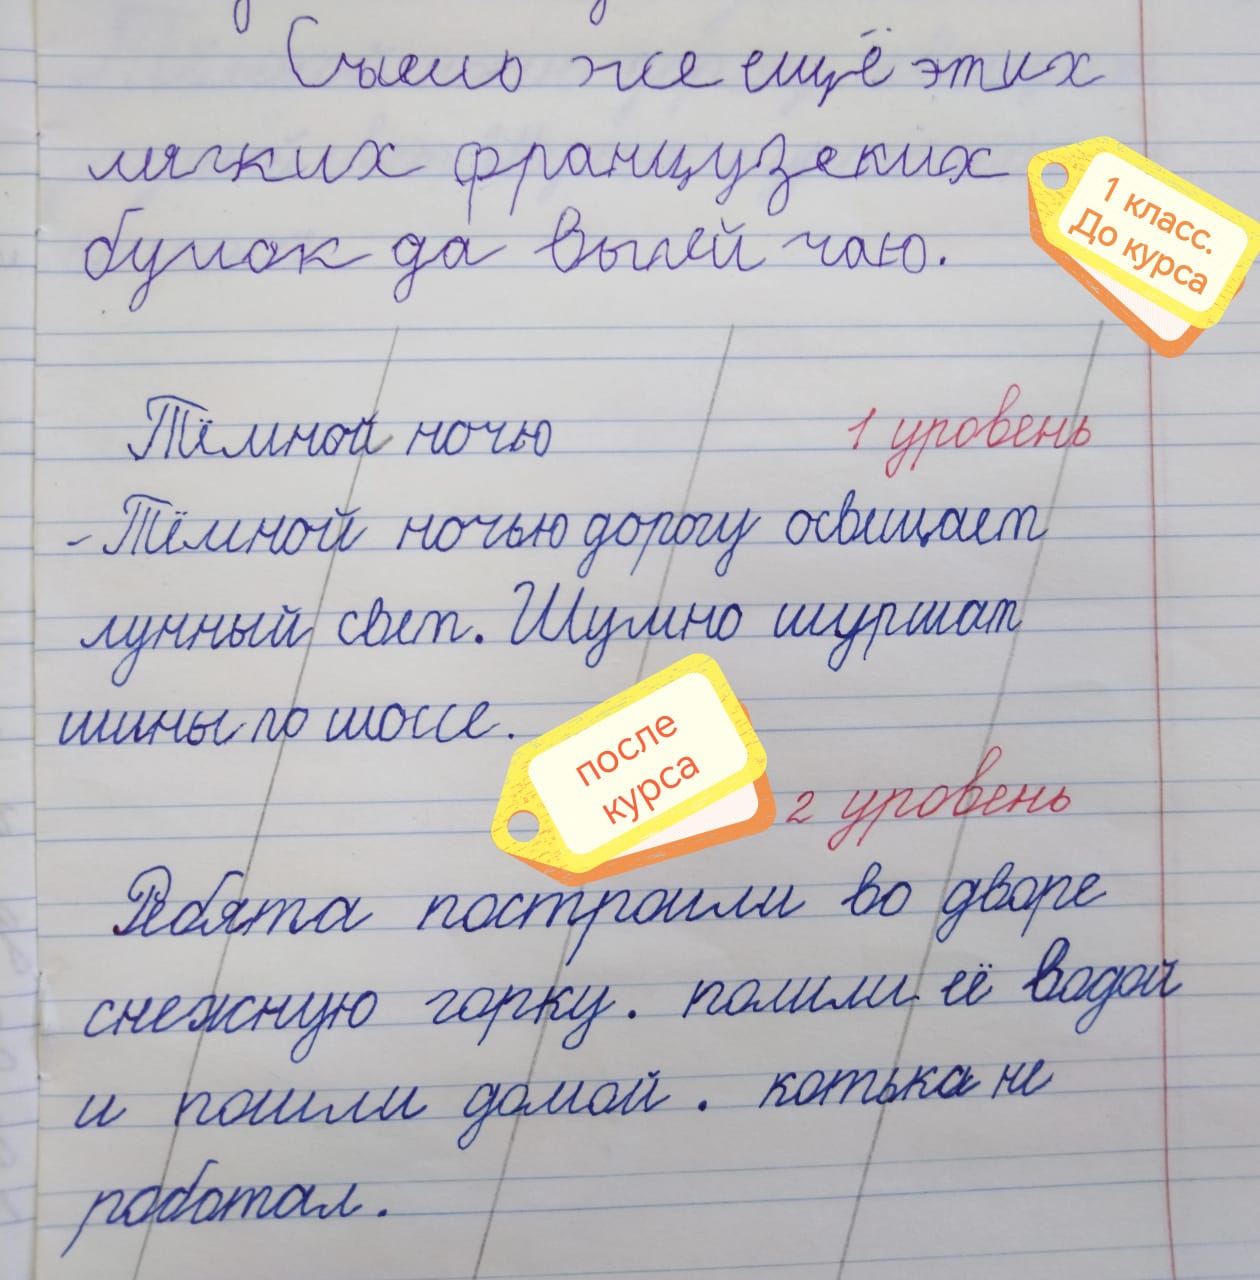 Съешь же ещё этих
мягких французских
булок да выпей чаю.
1 класс.
До курса
Тёмной ночью
1 уровень
- Тёмной ночью дорогу освещает
лунный свет. Шумно шуршат
шины по шоссе.
после
курса
2 уровень
Ребята построили во дворе
снежную горку. полили её водой
и пошли домой. котька не
роботал.